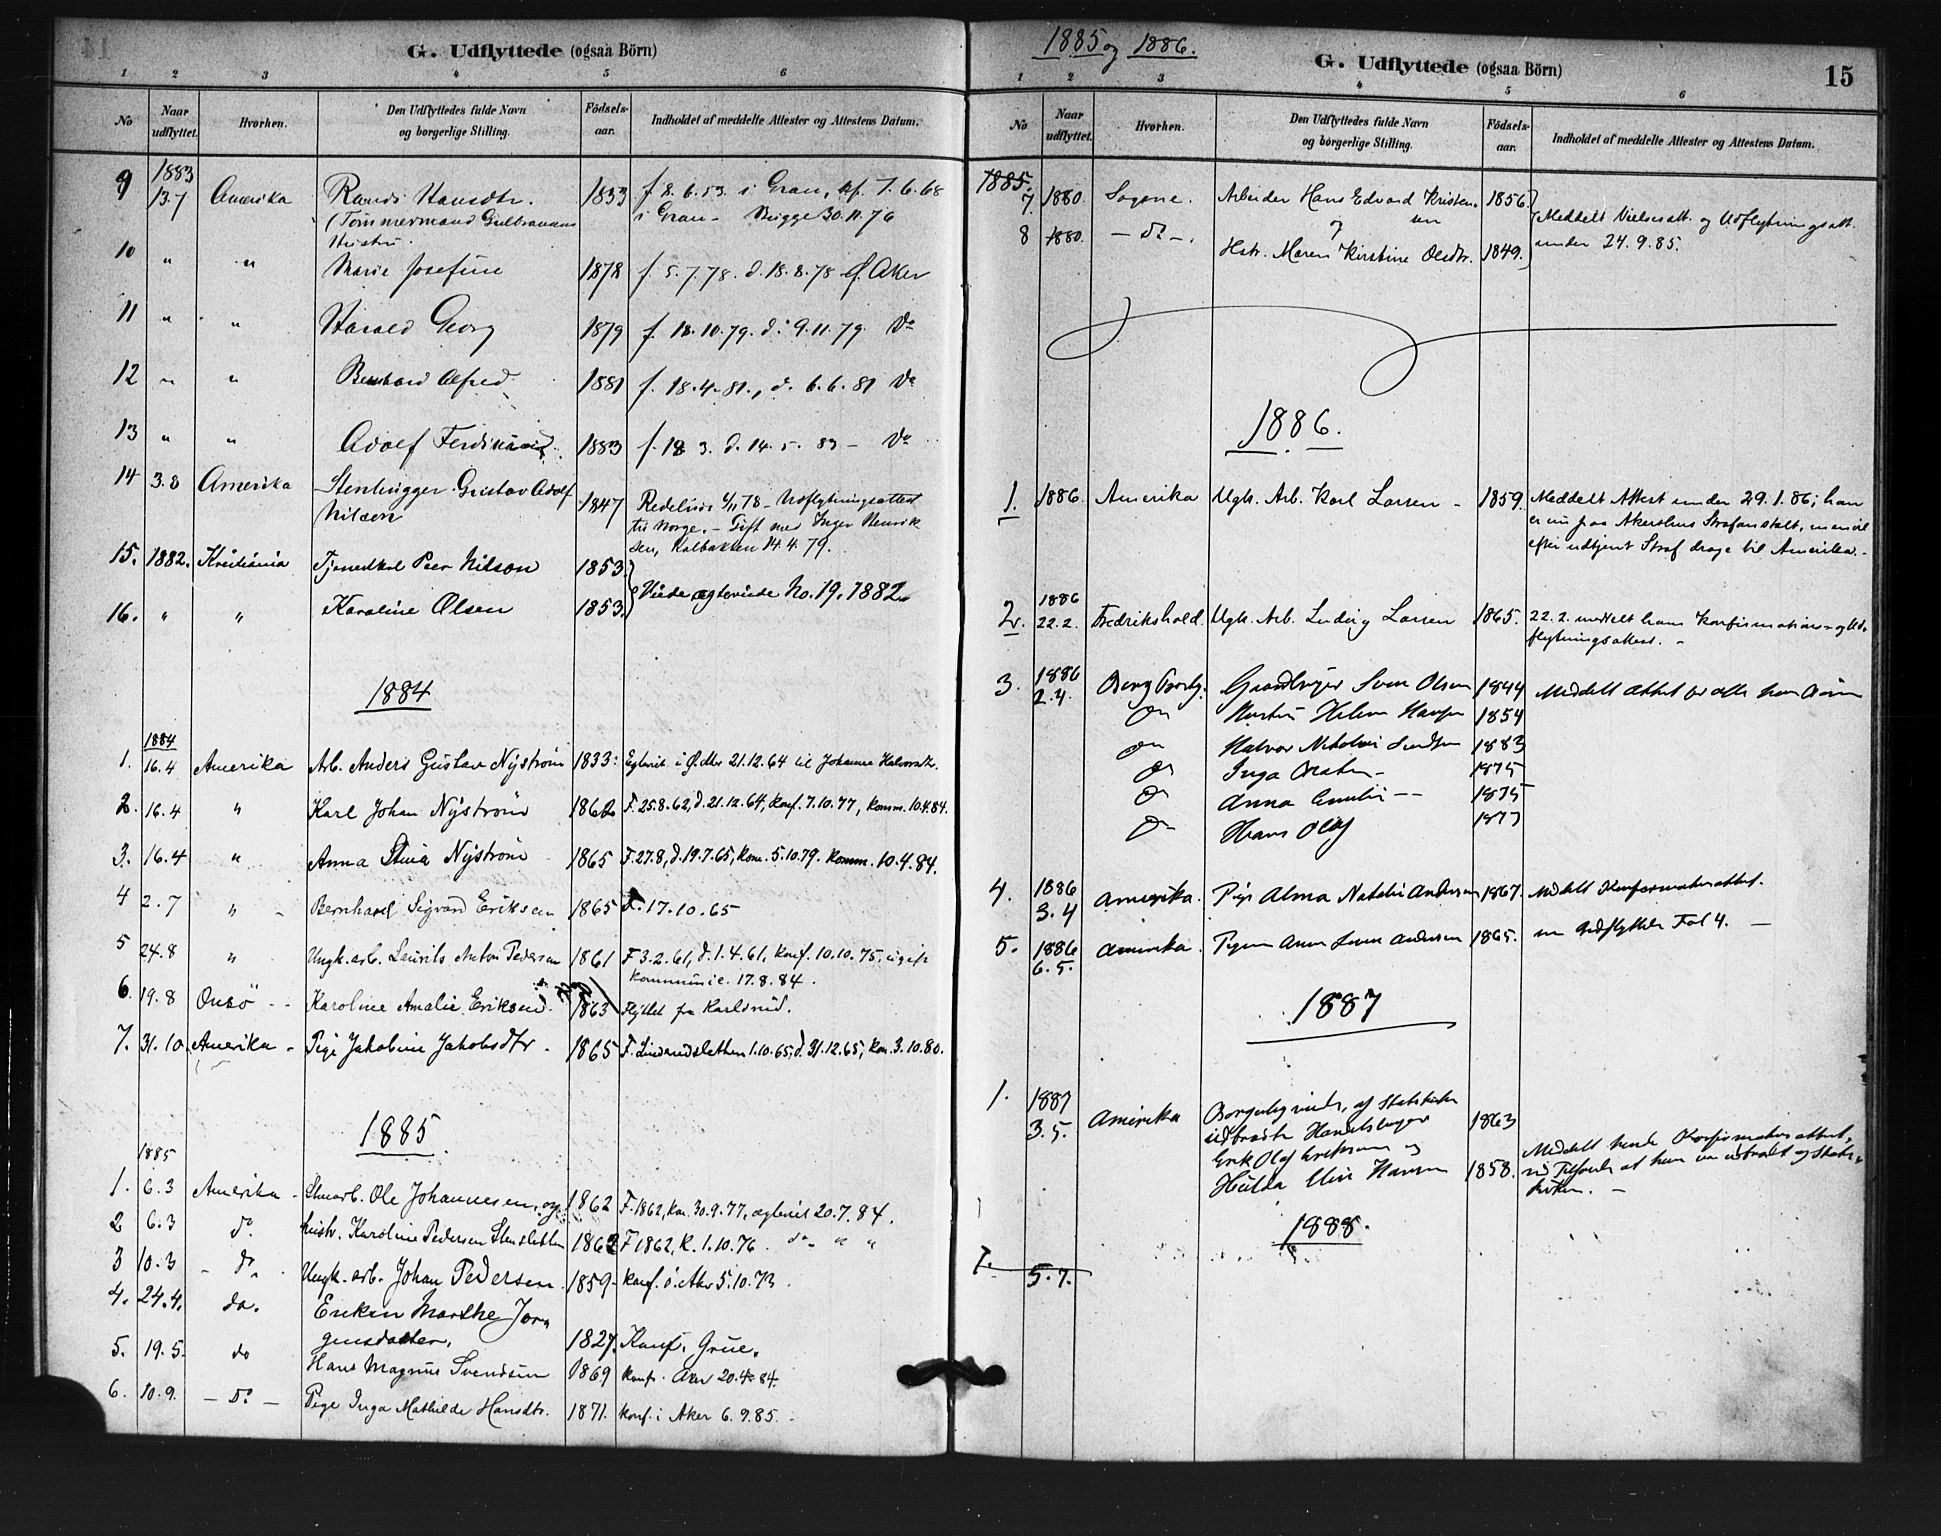 G. Udflyttede (ogsaa Börn)
1 2 3 4 5 6
No
Naar udflyttet.
Hvorhen.
Den Udflyttedes fulde Navn og borgerlige Stilling.
Födsels-aar.
Indholdet af meddelte Attester og Attestens Datum.
9 1883 13.7 Amerika Randi Hansdtr. 1833 f. 8.6.53 i Gran, kf. 7.6.68
(Tømmermand Gulbransens i Gran - Brygge 30.11.76
Hustru.
10 " " Marie Josefine 1878 f. 5.7.78. d. 18.8.78 Ø. Aker
11 " " Harald Georg 1879 f. 18.10.79. d. 9.11.79. Do
12 " " Bernhard Alfred 1881 f. 18.4.81., d. 6.6.81 Do
13 " " Adolf Ferdinand. 1883 f. 18 3. d. 14.5.83 - Do
14 3.8 Amerika Stenhugger Gustav Adolf 1847 Udflytningsattest
Nilsen til Norge. - Gift med Inger Henrik
sen, Kalbakken 14.4.79.
15. 1882. Kristiania Peer Nilson 1853.
Viede No. 19. 1882
16. " " Karoline Olsen 1853.
1884
1884
1. 16.4 Amerika Arb. Anders Gustav Nyström 1833: Egteviet i Ø. Aker 21.12.64 til Johanne Halvorsdtr.
2. 16.4 " Karl Johan Nyström 1862 F. 25.8.62, d. 21.12.64, konf. 7.10.77, komm. 10.4.84.
3. 16.4 " Anna Stina Nyström 1865 F. 27.8, d. 19.7.65, kon. 5.10.79. komm. 10.4.84.
4 2.7 " - Bernhard Sigvard Eriksen 1865 F. 17.10.65
5 24.8 " Ungk. arb. Laurits Anton Pedersen 1861 F 3.2.61, d. 1.4.61, konf. 10.10.75, ugift
kommunic. 17.8.84.
6. 19.8 Onsö - - Karoline Amalie Eriksen 1863 Flyttet fra
7. 31.10. Amerika - Pige Jakobine Jakobsdtr. 1865 F. 1.10.65, d. 31.12.65, kon. 3.10.80.
1885.
1885
1. 6.3 Amerika - Ole Johannesen, og 1862 F. 1862, kon. 30.9.77, egteviet 20.7.84.
2 6.3 do. hustr. Karoline Pedersen 1862 F 1862, K. 1.10.76. do. " "
3 10.3 - do. Ungk. arb. Johan Pedersen 1859. konf. Ö. Aker 5.10.73.
4. 24.4. do. Eriksen Marthe Jörgensdatter. 1827. Konf. i Grue.
5. 19.5. do Hans Magnus Svendsen 1869 konf. Aker 20.4.84.
6. 10.9. - Do - Pige Inga Mathilde Hansdtr. 1871. konf. i Aker 6.9.85. -
1885 og 1886.
G. Udflyttede (ogsaa Börn)
15
1 2 3 4 5 6
No
Naar udflyttet.
Hvorhen.
Den Udflyttedes fulde Navn og borgerlige Stilling.
Födsels-aar.
Indholdet af meddelte Attester og Attestens Datum.
1885.
7. 1880. Sogene. Arbeider Hans Edvard Kristensen 1856.
og Meddelt Vielsesatt. og Udflytningsatt.
8 1880. - do -. Hstr. Maren Kirstine Olsdtr. 1849. under 24.9.85.
1886.
1. 1886. Amerika Ugk. Arb. Karl Larsen - 1859. Meddelt Attest under 29.1.86; han
er nu paa Akershus Strafanstalt, men vil
efter udtjent Straf drage til Amerika. -
2. 1886 22.2. Fredrikshald. Ugk. Arb. Ludvig Larsen 1865. 22.2. meddelt ham Konfirmations- og Ud-
flytningsattest. -
3. 1886 2.4. Berg Sven Olsen 1844 Meddelt Attest
Hustru Helene 1854
Halvor 1883
Inga 1875
Anna 1875
Hans Olaf 1877
4. 1886 3.4 Amerika. Pige Alma Natalie Andersen 1867. Meddelt Konfirmationsattest.
5. 1886 6.5. Amerika. Pigen Anna Andersen 1865. se Udflyttede Fol 4. -
1887
1. 1887 3.5. Amerika Borgerlig viede, af Statskirken
udtraadte 1863
Erik Olaf Eriksen og
Hulda Hansen 1858. Meddelt hende Konfirmationsattest,
at hun er udtraadt af Stats-
kirken. -
1888.
1. 5.7.